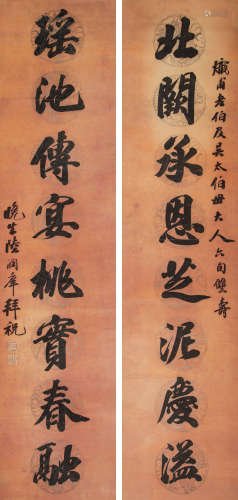 熾甫老伯及吴太伯母大人六旬雙壽
北闕承恩芝泥慶溢
瑶池傅宴桃實春融
晚生陸润庠拜祝